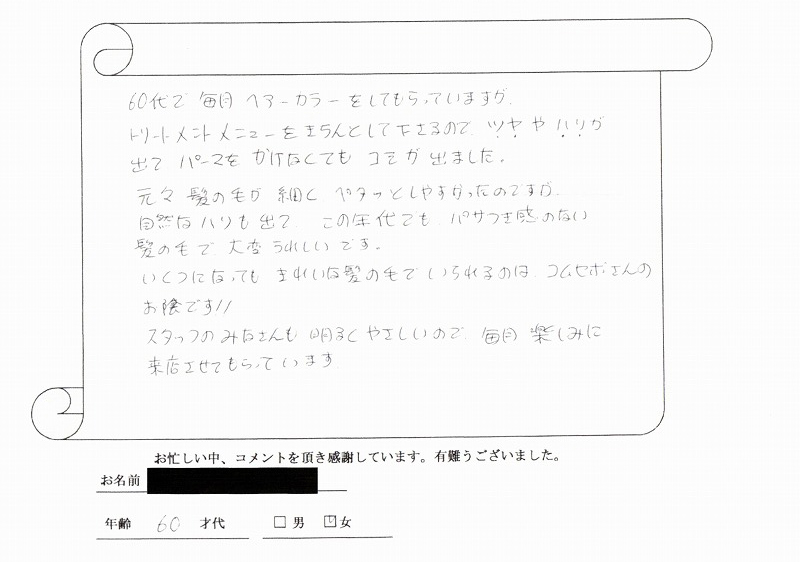 60代で 毎月 ヘアーカラーをしてもらっていますが、
トリートメントメニューをきちんとして下さるので、ツヤやハリが
出て パーマを かけなくても コシが 出ました。
元々 髪の毛が 細く、ペタッとしやすかったのですが、
自然なハリも出て、この年代でも、パサつき感のない
髪の毛で、大変うれしいです。
いくつになっても きれいな髪の毛で いられるのは、コムセボさんの
お陰です!!
スタッフのみなさんも 明るくやさしいので、毎月 楽しみに
来店させてもらっています
お忙しい中、コメントを頂き感謝しています。有難うございました。
お名前
年齢 60 才代 □ 男 ☑ 女